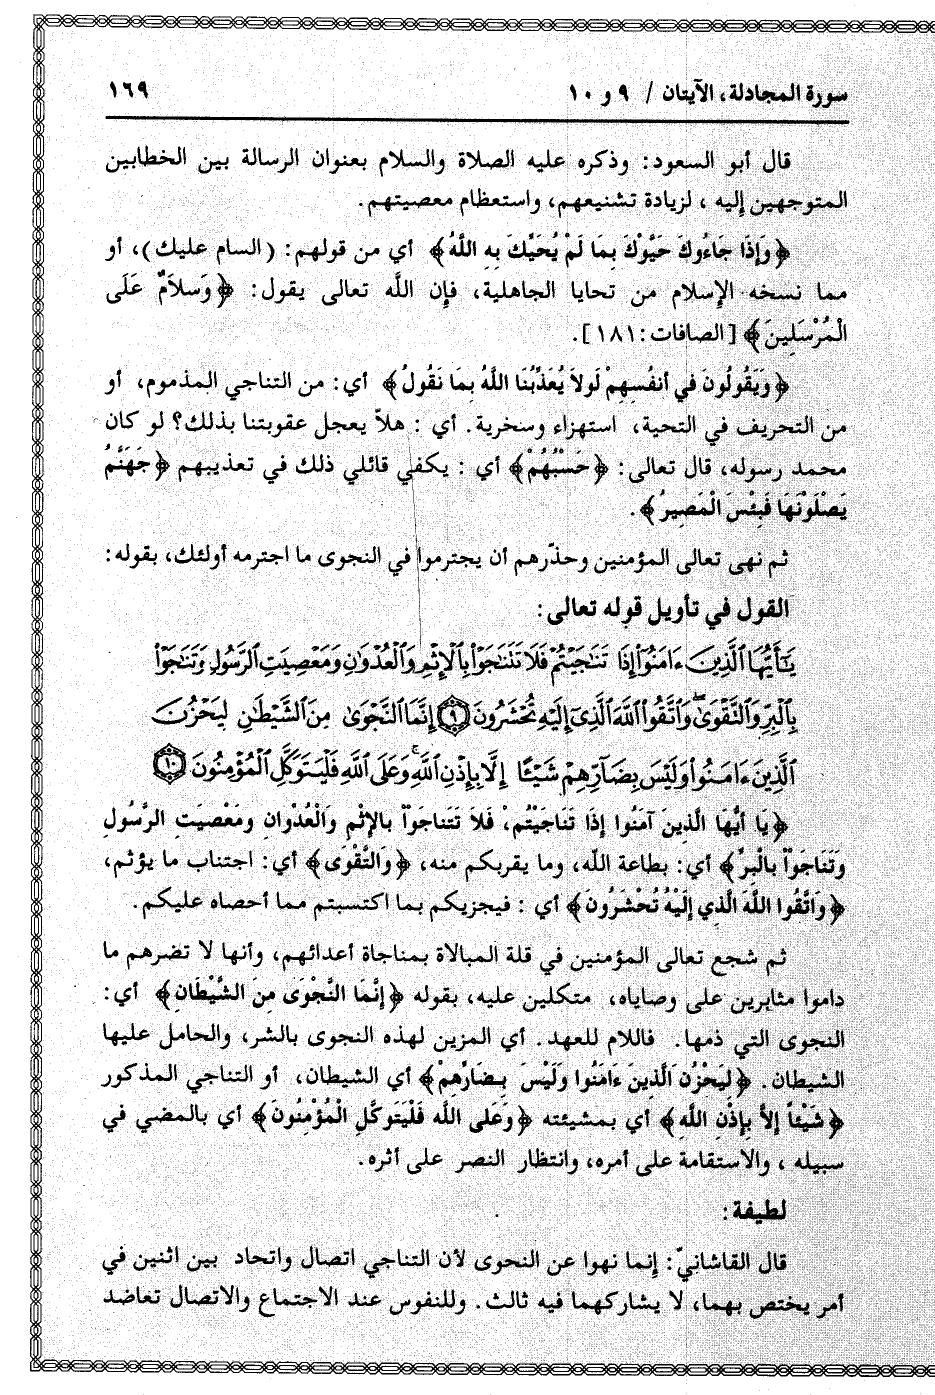 سورة المجادلة، الآيتان / ٩ و ١٠ ١٦٩
قال أبو السعود: وذكره عليه الصلاة والسلام بعنوان الرسالة بين الخطابين
المتوجهين إليه ، لزيادة تشنيعهم، واستعظام معصيتهم.
﴿وَإِذَا جَاءُوكَ حَيَّوْكَ بِمَا لَمْ يُحَيِّكَ بِهِ اللَّهُ﴾ أي من قولهم: (السام عليك)، أو
مما نسخه الإسلام من تحايا الجاهلية، فإن اللَّه تعالى يقول: ﴿وَسَلاَمٌ عَلَى
الْمُرْسَلِينَ﴾ [الصافات:١٨١].
﴿وَيَقُولُونَ فِي أنفُسِهِمْ لَولاَ يُعَذِّبُنَا اللَّهُ بِمَا نَقُولُ﴾ أي: من التناجي المذموم، أو
من التحريف في التحية، استهزاء وسخرية. أي : هلاّ يعجل عقوبتنا بذلك؟ لو كان
محمد رسوله، قال تعالى: ﴿حَسْبُهُمْ﴾ أي : يكفي قائلي ذلك في تعذيبهم ﴿جَهَنَّمُ
يَصْلَوْنَهَا فَبِئْسَ الْمَصِيرُ﴾.
ثم نهى تعالى المؤمنين وحذّرهم أن يجترموا في النجوى ما اجترمه أولئك، بقوله:
القول في تأويل قوله تعالى:
يَٰٓأَيُّهَا ٱلَّذِينَ ءَامَنُوٓا۟ إِذَا تَنَٰجَيْتُمْ فَلَا تَتَنَٰجَوْا۟ بِٱلْإِثْمِ وَٱلْعُدْوَٰنِ وَمَعْصِيَتِ ٱلرَّسُولِ وَتَنَٰجَوْا۟
بِٱلْبِرِّ وَٱلتَّقْوَىٰ ۖ وَٱتَّقُوا۟ ٱللَّهَ ٱلَّذِىٓ إِلَيْهِ تُحْشَرُونَ ٩ إِنَّمَا ٱلنَّجْوَىٰ مِنَ ٱلشَّيْطَٰنِ لِيَحْزُنَ
ٱلَّذِينَ ءَامَنُوا۟ وَلَيْسَ بِضَآرِّهِمْ شَيْـًٔا إِلَّا بِإِذْنِ ٱللَّهِ ۚ وَعَلَى ٱللَّهِ فَلْيَتَوَكَّلِ ٱلْمُؤْمِنُونَ ١٠
﴿يَا أيُّهَا الَّذِينَ آمَنُوا إِذَا تَنَاجَيْتُم، فَلاَ تَتَناجَوْاْ بالإثْمِ وَالْعُدْوَانِ ومَعْصِيَتِ الرَّسُولِ
وَتَنَاجَوْاْ بالْبِرِّ﴾ أي: بطاعة اللَّه، وما يقربكم منه، ﴿وَالتَّقْوَى﴾ أي: اجتناب ما يؤثم،
﴿وَاتَّقُوا اللَّهَ الَّذِي إِلَيْهِ تُحْشَرُونَ﴾ أي : فيجزيكم بما اكتسبتم مما أحصاه عليكم.
ثم شجع تعالى المؤمنين في قلة المبالاة بمناجاة أعدائهم، وأنها لا تضرهم ما
داموا مثابرين على وصاياه، متكلين عليه، بقوله ﴿إِنَّمَا النَّجْوَى مِنَ الشَّيْطَانِ﴾ أي:
النجوى التي ذمها. فاللام للعهد. أي المزين لهذه النجوى بالشر، والحامل عليها
الشيطان. ﴿لِيَحْزُن الَّذِينَ ءَامَنُوا وَلَيْسَ بِضَارِّهِمْ﴾ أي الشيطان، أو التناجي المذكور
﴿شَيْئاً إلاَّ بِإِذْنِ اللَّهِ﴾ أي بمشيئته ﴿وَعَلى اللَّه فَلْيَتَوكَّلِ الْمُؤْمِنُونَ﴾ أي بالمضي في
سبيله ، والاستقامة على أمره، وانتظار النصر على أثره.
لطيفة:
قال القاشانيّ: إنما نهوا عن النحوى لأن التناجي اتصال واتحاد بين اثنين في
أمر يختص بهما، لا يشاركهما فيه ثالث. وللنفوس عند الاجتماع والاتصال تعاضد